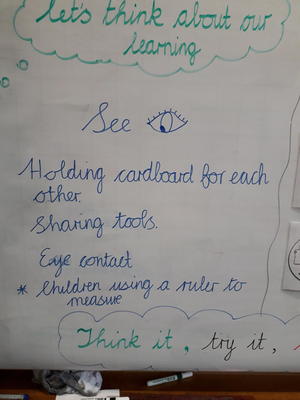 let's think about our
learning
See
Holding cardboard for each
other.
Sharing tools.
Eye contact
* Children using a ruler to
measure
Think it, try it,